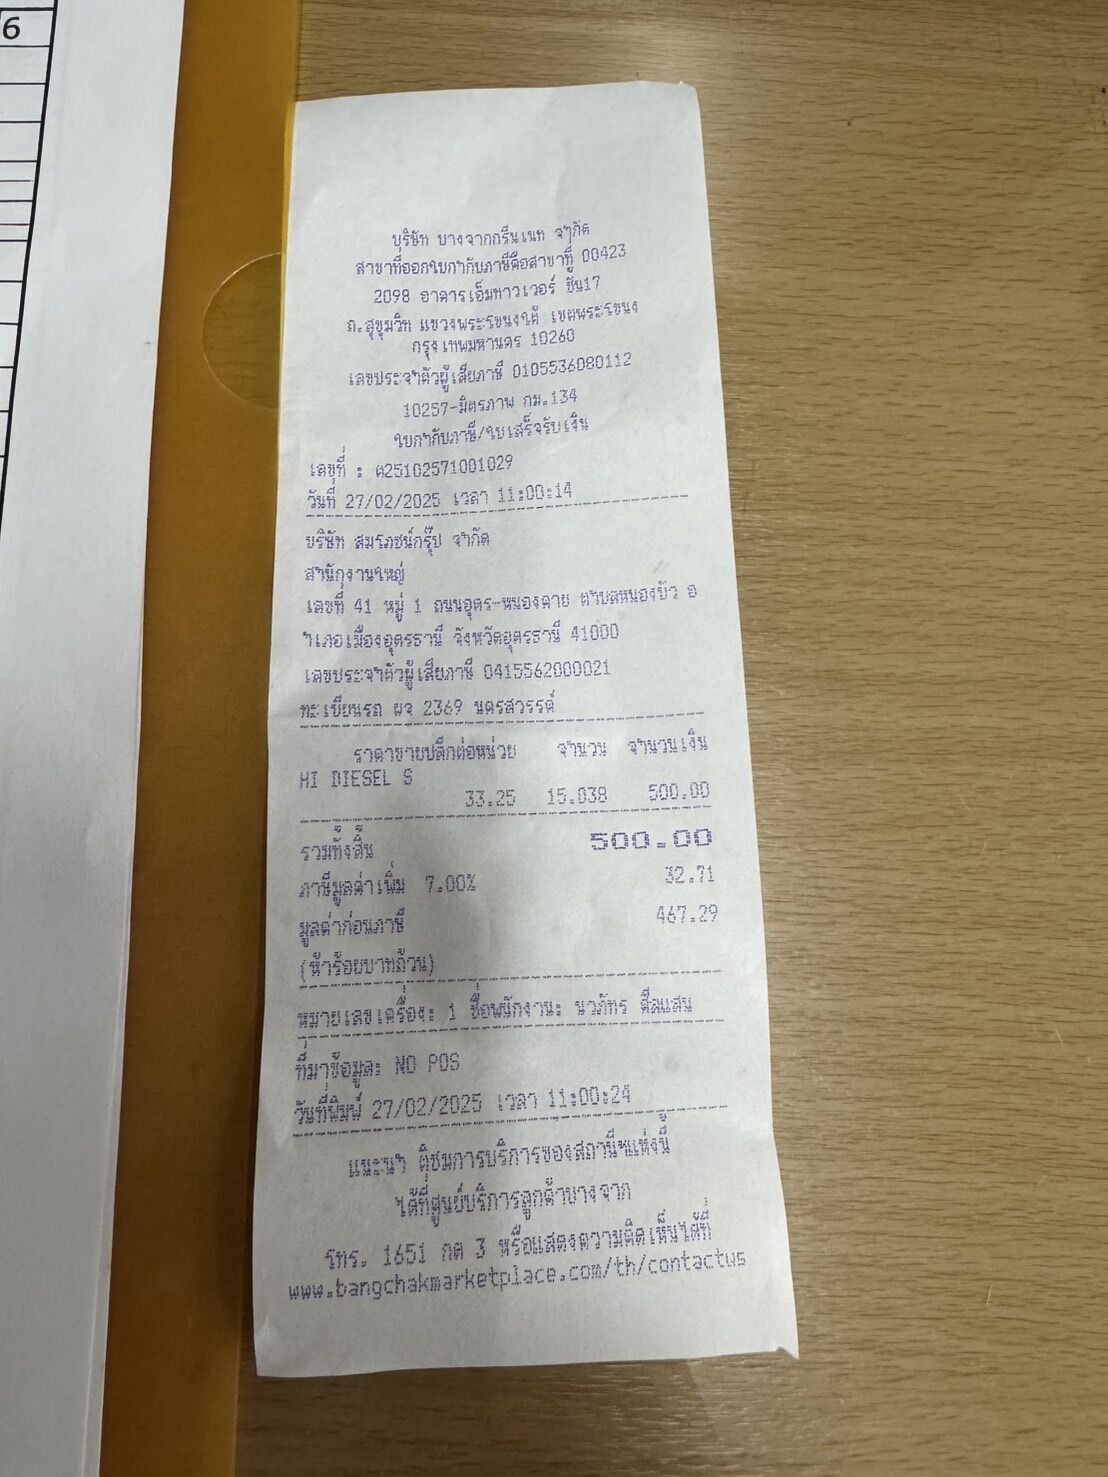 6
บริษัท บางจากกรีนเนท จำกัด
สาขาที่ออกใบกำกับภาษีคือสาขาที่ 00423
2098 อาคารเอ็มทาวเวอร์ ชั้น17
ถ.สุขุมวิท แขวงพระโขนงใต้ เขตพระโขนง
กรุงเทพมหานคร 10260
เลขประจำตัวผู้เสียภาษี 0105536080112
10257-มิตรภาพ กม.134
ใบกำกับภาษี/ใบเสร็จรับเงิน
เลขที่ : ต25102571001029
วันที่ 27/02/2025 เวลา 11:00:14
บริษัท สมโภชน์กรุ๊ป จำกัด
สำนักงานใหญ่
เลขที่ 41 หมู่ 1 ถนนอุดร-หนองคาย ตำบลหนองบัว อ
ำเภอเมืองอุดรธานี จังหวัดอุดรธานี 41000
เลขประจำตัวผู้เสียภาษี 0415562000021
ทะเบียนรถ ผจ 2369 นครสวรรค์
ราคาขายปลีกต่อหน่วย จำนวน จำนวนเงิน
HI DIESEL S
33.25 15.038 500.00
รวมทั้งสิ้น 500.00
ภาษีมูลค่าเพิ่ม 7.00% 32.71
มูลค่าก่อนภาษี 467.29
(ห้าร้อยบาทถ้วน)
หมายเลขเครื่อง: 1 ชื่อพนักงาน: นวภัทร ศีลแสน
ที่มาข้อมูล: NO POS
วันที่พิมพ์ 27/02/2025 เวลา 11:00:24
แนะนำ ติชมการบริการของสถานีฯแห่งนี้
ได้ที่ศูนย์บริการลูกค้าบางจาก
โทร. 1651 กด 3 หรือแสดงความคิดเห็นได้ที่
www.bangchakmarketplace.com/th/contactus